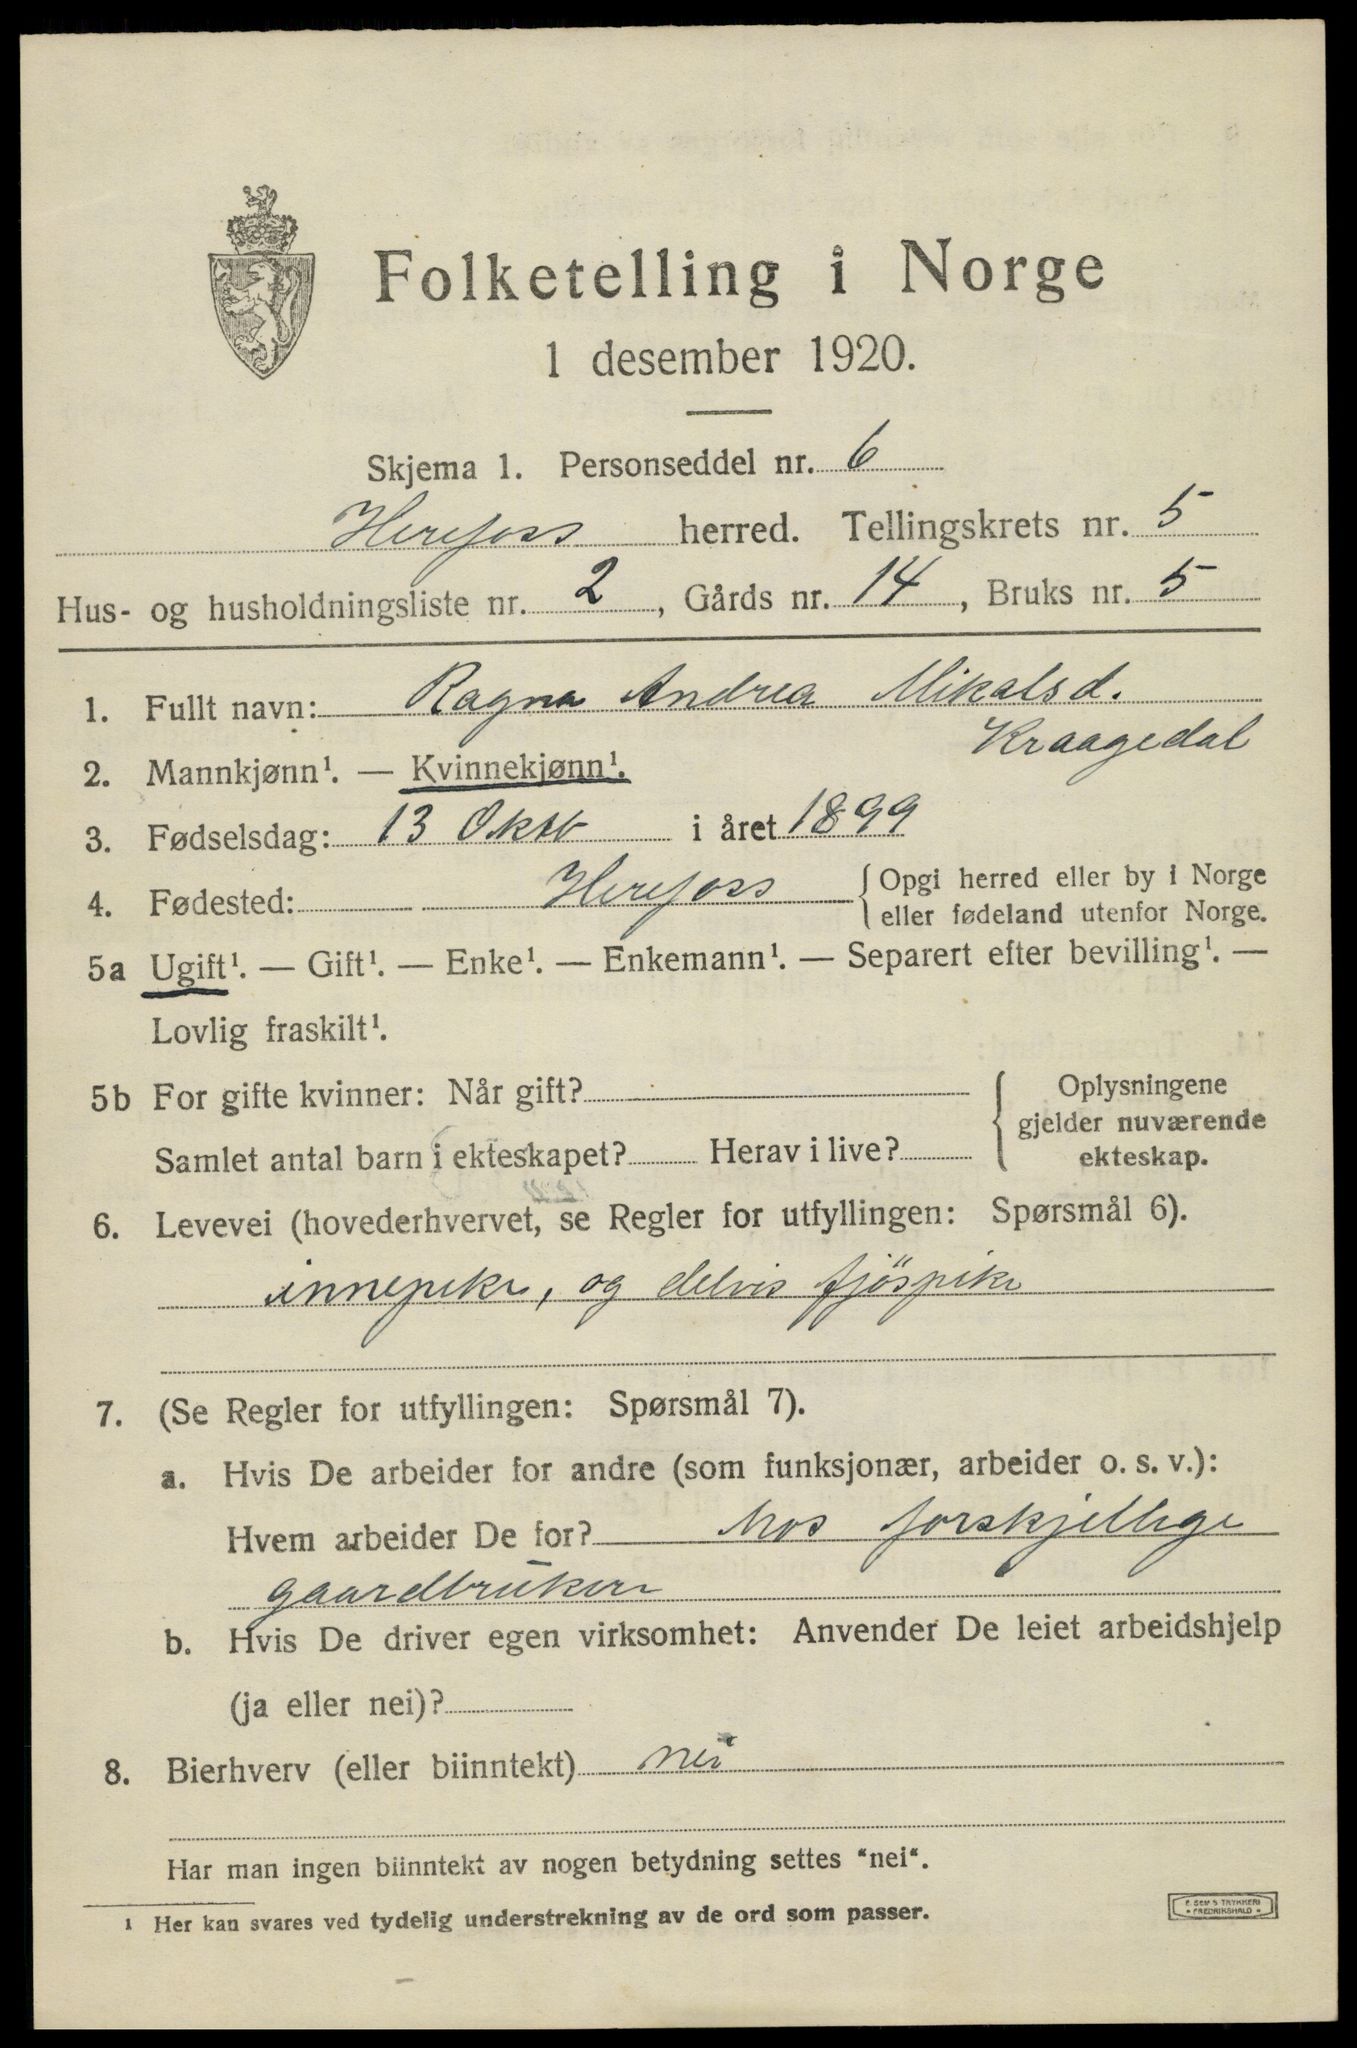 Folketelling i Norge
1 desember 1920.
Skjema 1. Personseddel nr. 6
Herefoss herred. Tellingskrets nr. 5
Hus- og husholdningsliste nr. 2, Gårds nr. 14, Bruks nr. 5
1. Fullt navn: Ragna Andrea Mikalsd.
Kraagedal
2. Mannkjønn¹. — Kvinnekjønn¹.
3. Fødselsdag: 13 Oktb i året 1899
4. Fødested: Herefoss { Opgi herred eller by i Norge
eller fødeland utenfor Norge.
5a Ugift¹. — Gift¹. — Enke¹. — Enkemann¹. — Separert efter bevilling¹. —
Lovlig fraskilt¹.
5b For gifte kvinner: Når gift?
Samlet antal barn i ekteskapet? Herav i live?
{ Oplysningene
gjelder nuværende
ekteskap.
6. Levevei (hovederhvervet, se Regler for utfyllingen: Spørsmål 6).
innepike, og delvis fjöspike
7. (Se Regler for utfyllingen: Spørsmål 7).
a. Hvis De arbeider for andre (som funksjonær, arbeider o. s. v.):
Hvem arbeider De for? hos forskjellige
gaardbrukere
b. Hvis De driver egen virksomhet: Anvender De leiet arbeidshjelp
(ja eller nei)?
8. Bierhverv (eller biinntekt) nei
Har man ingen biinntekt av nogen betydning settes "nei".
¹ Her kan svares ved tydelig understrekning av de ord som passer.
TRYKKERI
FREDRIKSHALD